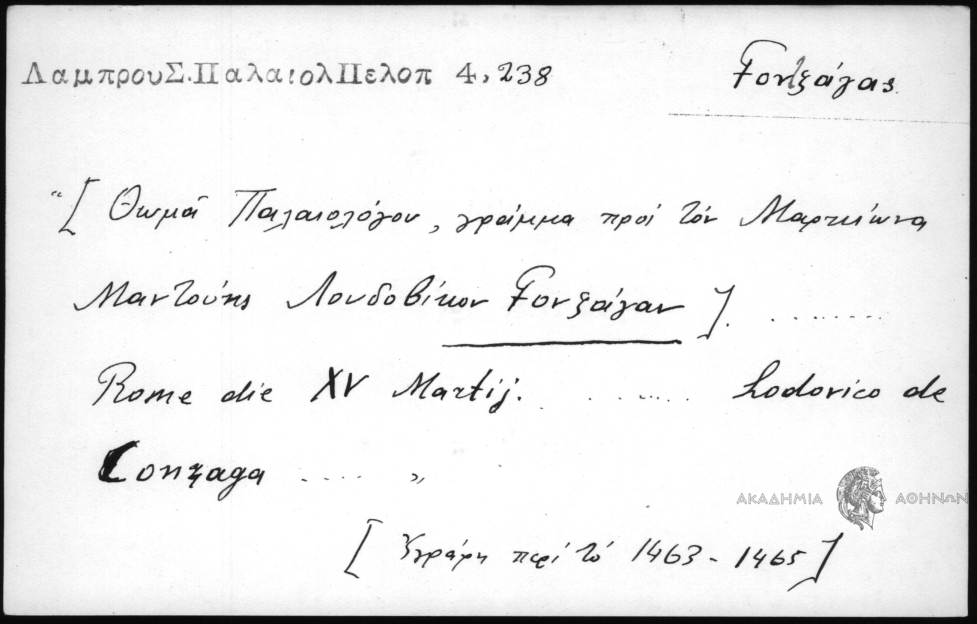 ΛαμπρουΣ.ΠαλαιολΠελοπ 4,238
Γονζάγας
"[Θωμᾶ Παλαιολόγου, γράμμα πρὸς τὸν Μαρκίωνα
Μαντούης Λουδοβίκον Γονζάγαν]. ........
Rome die XV Martij. ...... Lodovico de
Conzaga .... "
[Ἐγράφη περὶ τὸ 1463-1465]
ΑΚΑΔΗΜΙΑ ΑΘΗΝΩΝ